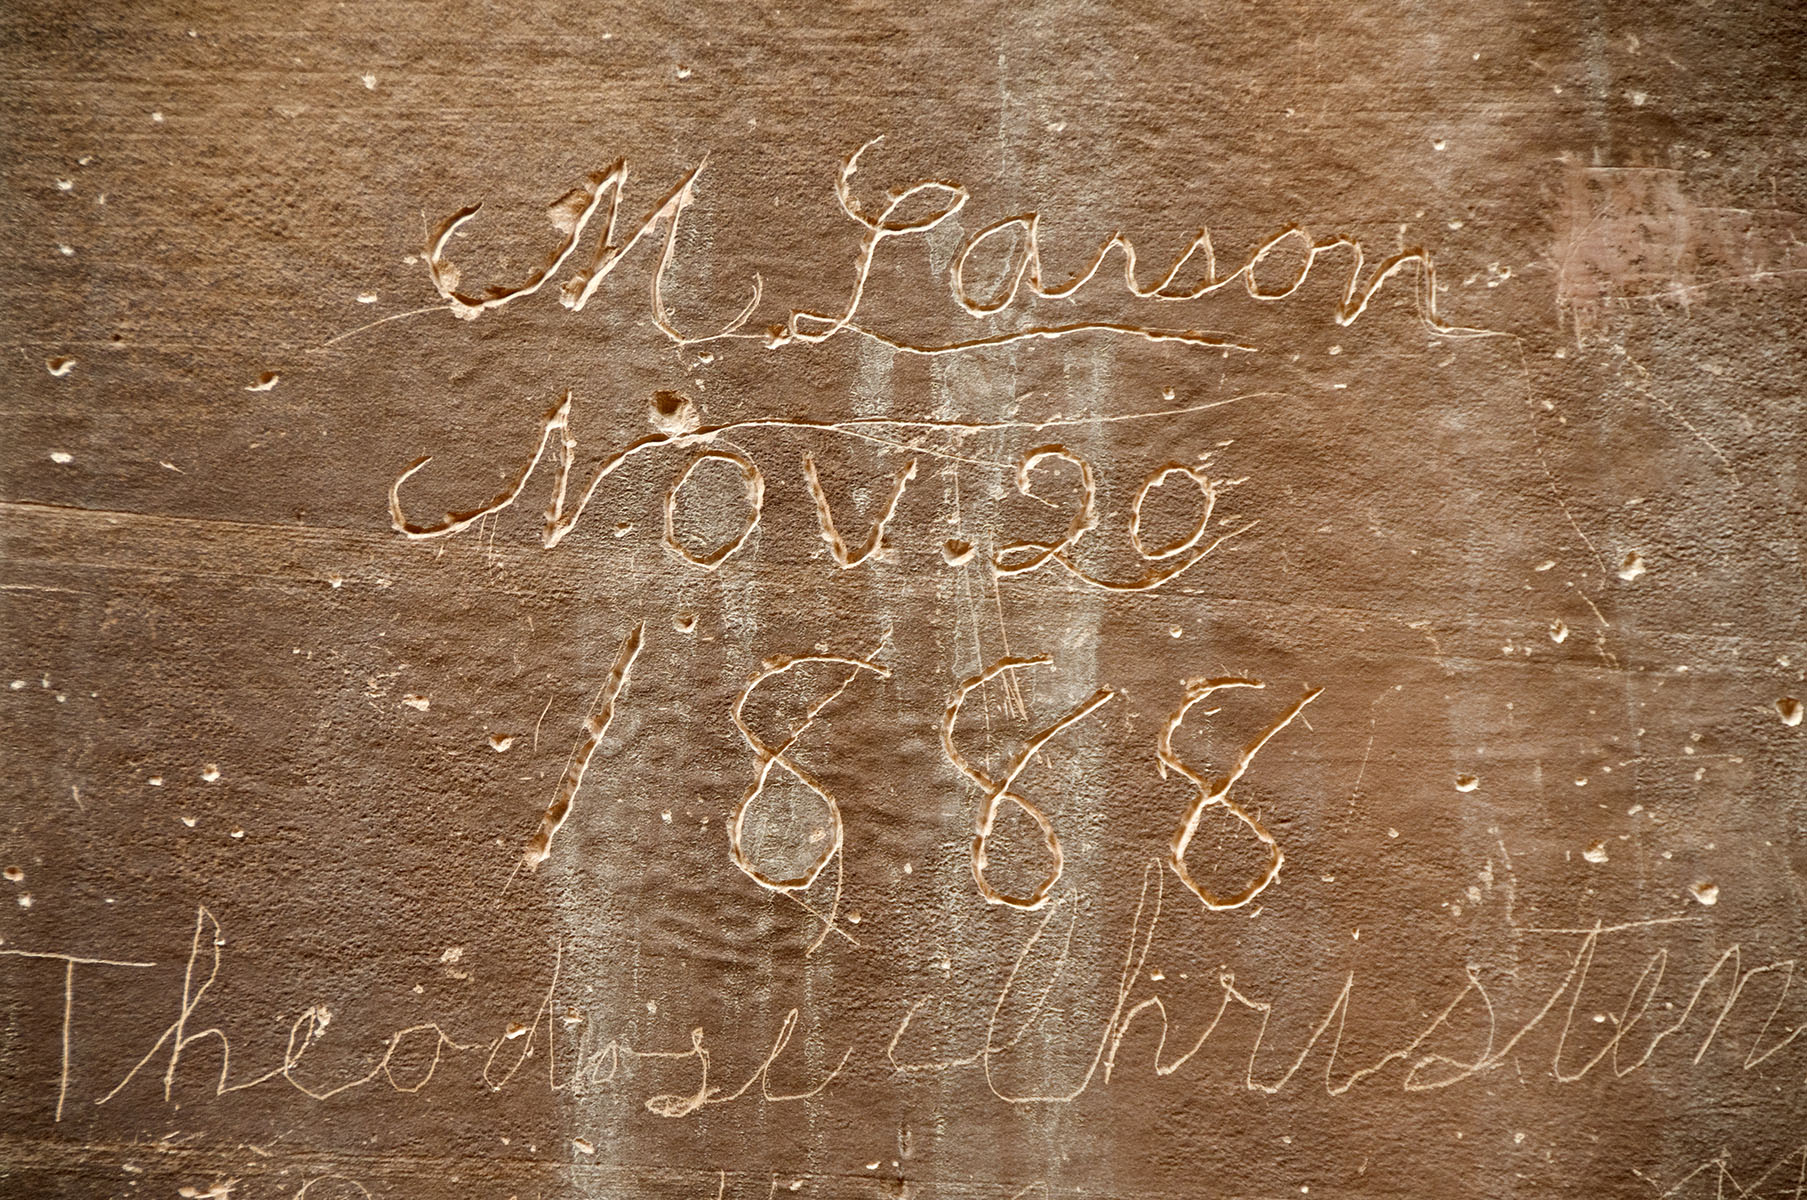 M Larson
Nov. 20
1888
Theodose Christen